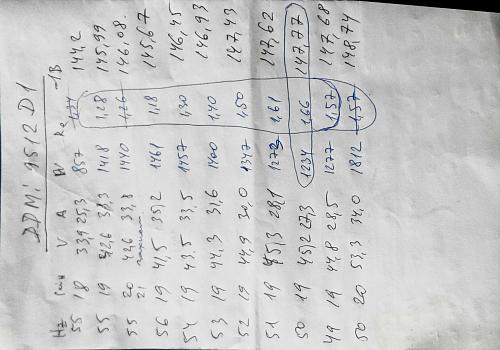 DDMi 9512 D1
Hz V A W Re -1B
55 18 33,9 25,3 857 144,2
55 19 42,6 1418 1,28 145,99
55 20 42,6 33,8 1440 1,26 146,08.
21
56 19 41,5 35,2 1461 1,18 145,67
54 19 43.5 33,5 1457 1,30 146,45
53 19 44,3 31,6 1400 1,40 146,93
52 19 44,9 30,0 1347 1,50 147,43
51 19 45,3 28,1 1,61 147,62
50 19 45,2 27,3 1234 1,66 147,77
49 19 44,8 28,5 1277 1,57 147,68
50 20 53,3 34,0 1812 1,57 148,74